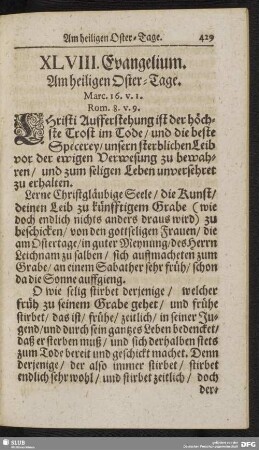 Am heiligen Oster-Tage. 429
XLVIII. Evangelium.
Am heiligen Oster-Tage.
Marc. 16. v. 1.
Rom. 8. v. 9.
CHristi Aufferstehung ist der höch-
ste Trost im Tode/ und die beste
Specerey/ unsern sterblichen Leib
vor der ewigen Verwesung zu bewah-
ren/ und zum seligen Leben unversehret
zu erhalten.
Lerne Christgläubige Seele/ die Kunst/
deinen Leib zu künfftigem Grabe (wie
doch endlich nichts anders draus wird) zu
beschicken/ von den gottseligen Frauen/ die
am Ostertage/ in guter Meynung/ des Herrn
Leichnam zu salben/ sich auffmacheten zum
Grabe/ an einem Sabather sehr früh/ schon
da die Sonne auffgieng.
O wie selig stirbet derjenige/ welcher
früh zu seinem Grabe gehet/ und frühe
stirbet/ das ist/ frühe/ zeitlich/ in seiner Ju-
gend/ und durch sein gantzes Leben bedencket/
daß er sterben muß/ und sich derhalben stets
zum Tode bereit und geschickt machet. Denn
derjenige/ der also immer stirbet/ stirbet
endlich sehr wohl/ und stirbet zeitlich/ doch
der-
SLUB
DFG